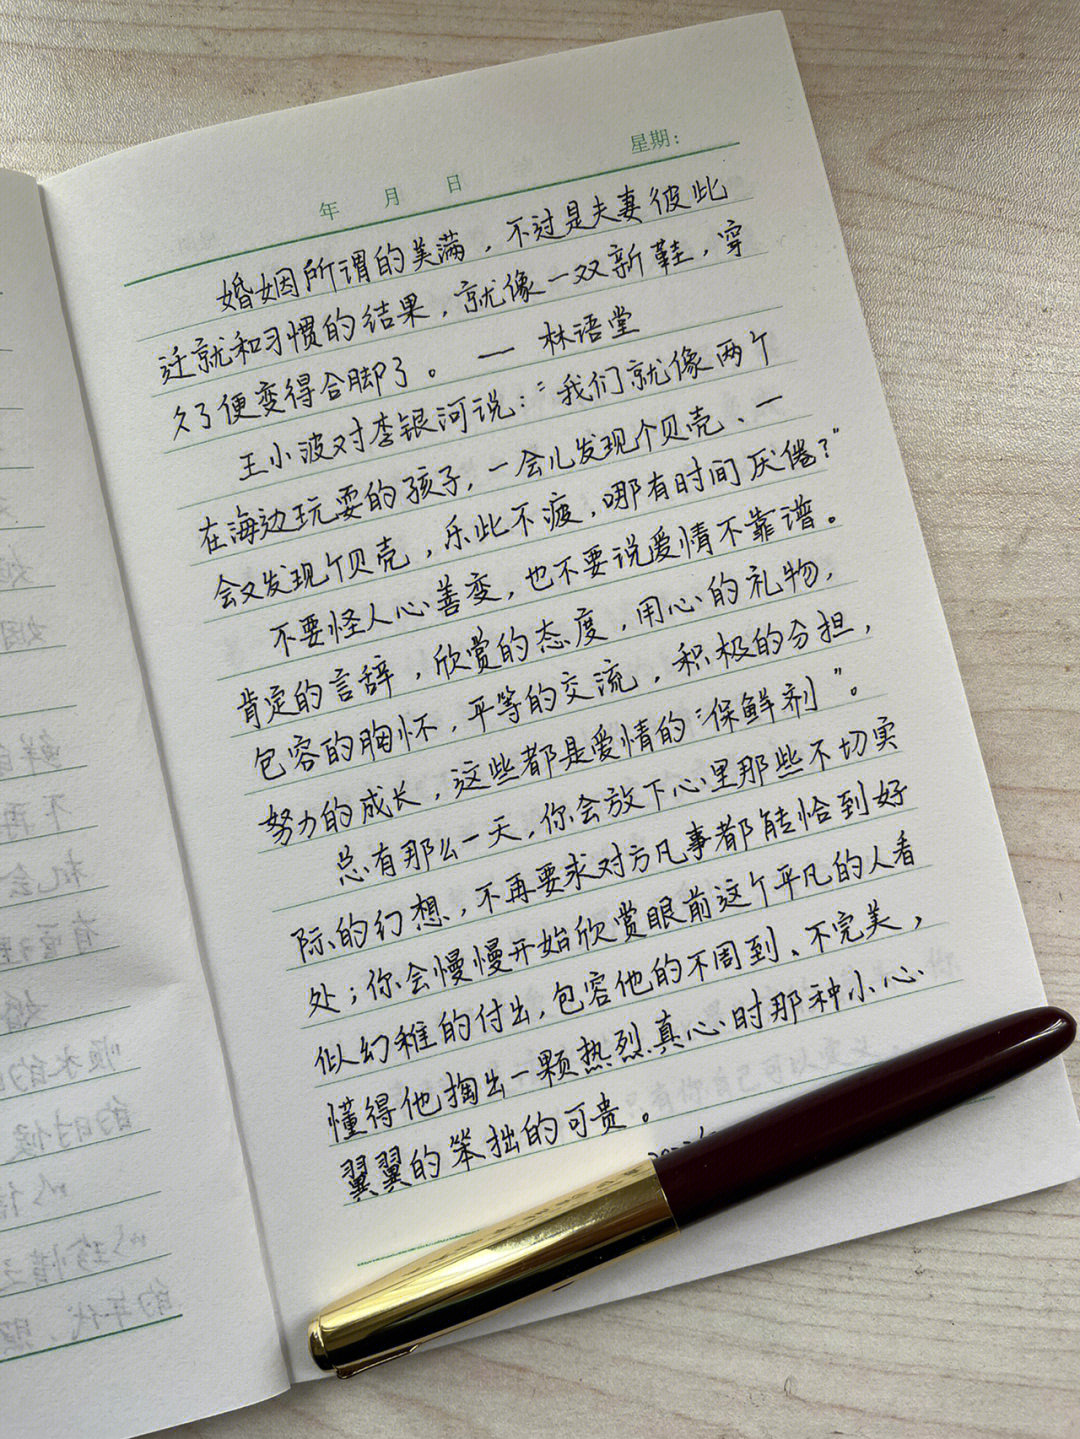 年 月 日 星期:
婚姻所谓的美满，不过是夫妻彼此
迁就和习惯的结果，就像一双新鞋，穿
久了便变得合脚了。 — 林语堂
王小波对李银河说："我们就像两个
在海边玩耍的孩子，一会儿发现个贝壳、一
会又发现个贝壳，乐此不疲，哪有时间厌倦？"
不要怪人心善变，也不要说爱情不靠谱。
肯定的言辞，欣赏的态度，用心的礼物，
包容的胸怀，平等的交流，积极的分担，
努力的成长，这些都是爱情的"保鲜剂"。
总有那么一天，你会放下心里那些不切实
际的幻想，不再要求对方凡事都能恰到好
处；你会慢慢开始欣赏眼前这个平凡的人看
似幼稚的付出，包容他的不周到、不完美，
懂得他掏出一颗热烈真心时那种小心
翼翼的笨拙的可贵。